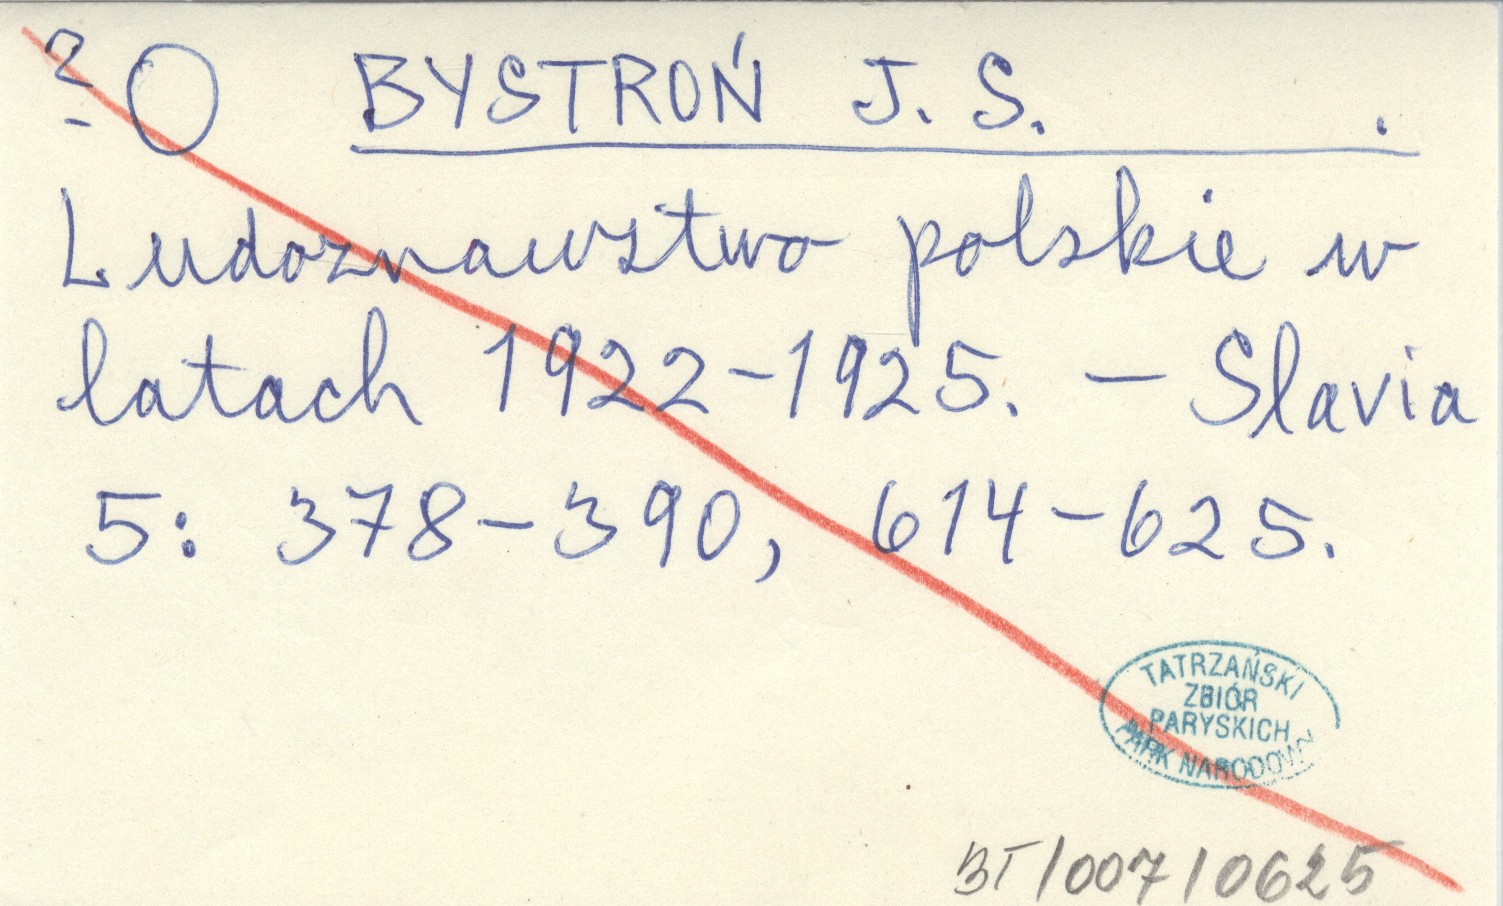 ? O BYSTROŃ J. S. .
Ludoznawstwo polskie w
latach 1922-1925. — Slavia
5: 378-390, 614-625.
TATRZAŃSKI
ZBIÓR
PARYSKICH
PARK NARODOWY
BT/007/0625